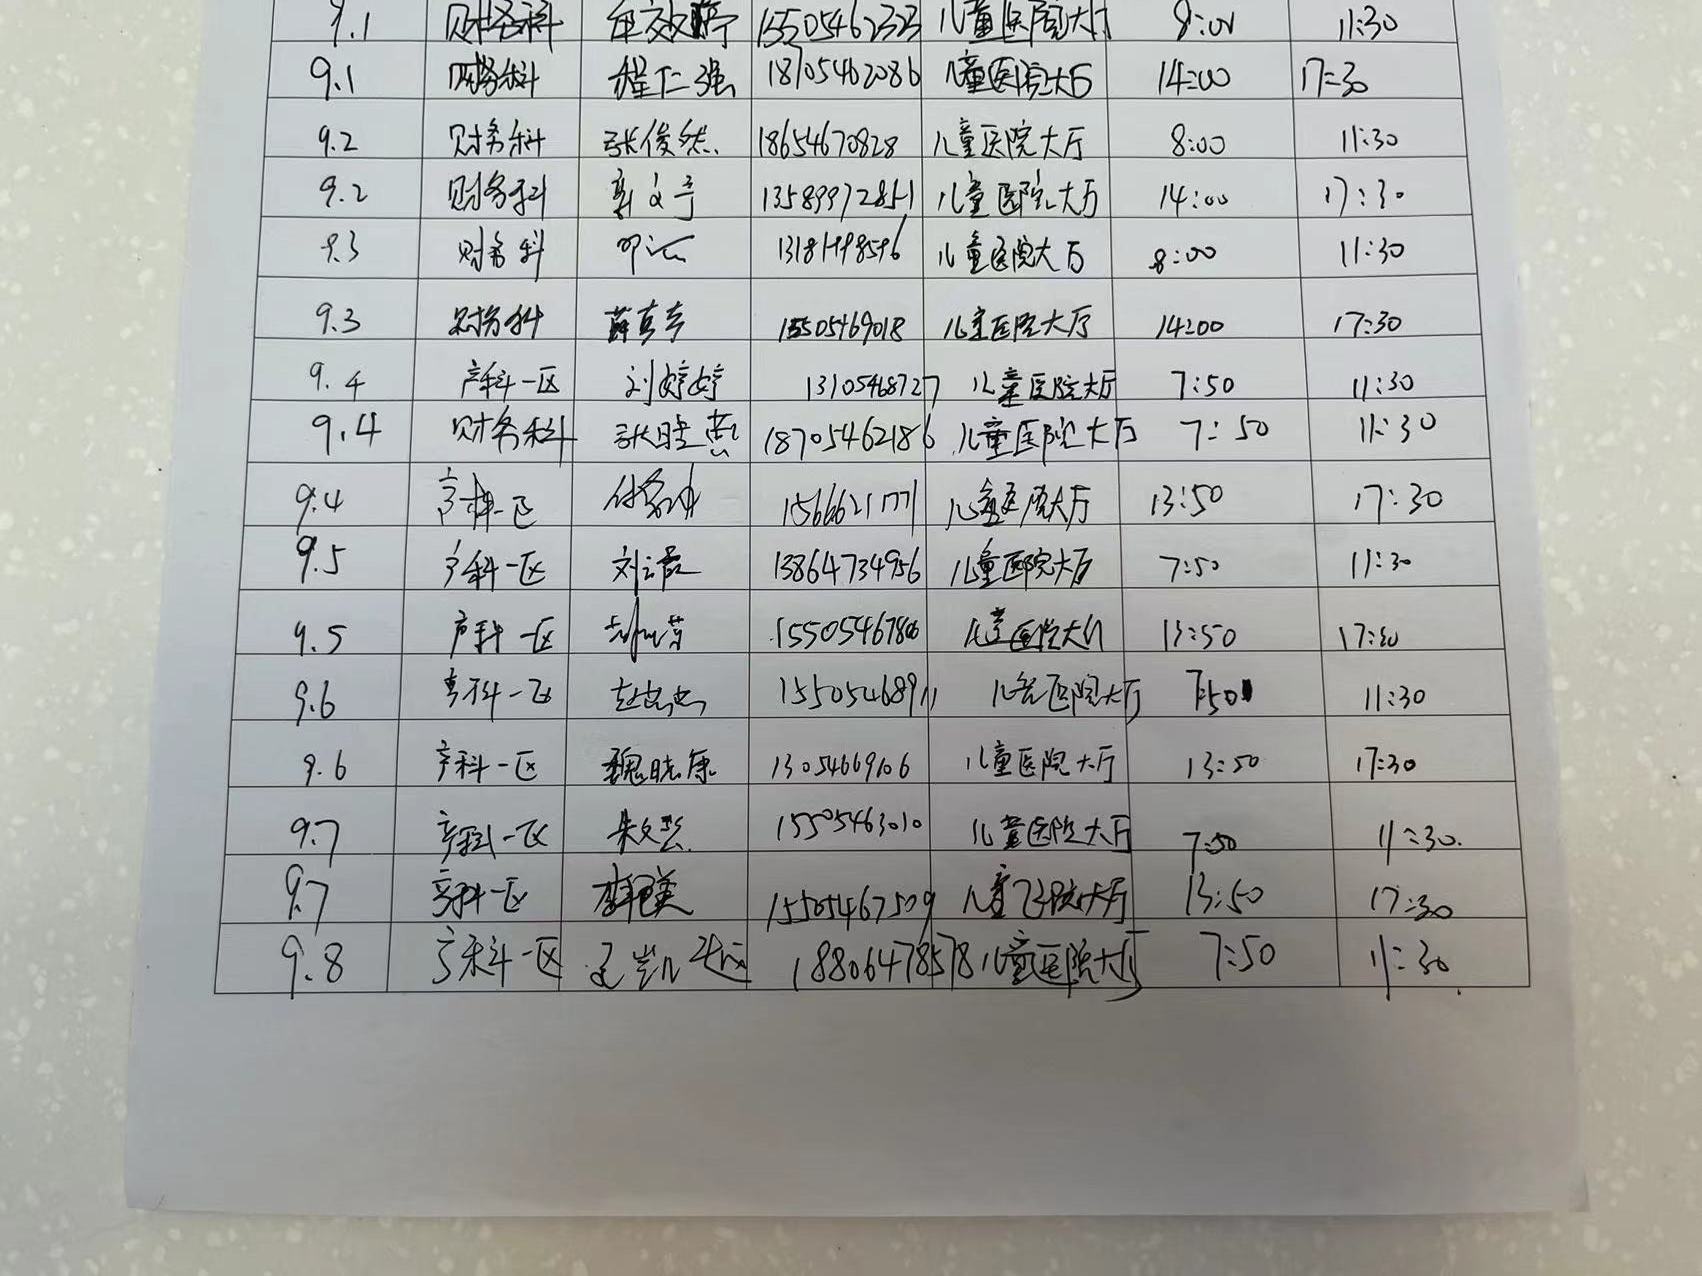 9.1 财务科 15505462323 儿童医院大厅 8:00 11:30
9.1 财务科 程仁强 18705462086 儿童医院大厅 14:00 17:30
9.2 财务科 张俊然 18654670828 儿童医院大厅 8:00 11:30
9.2 财务科 13589972851 儿童医院大厅 14:00 17:30
9.3 财务科 儿童医院大厅 8:00 11:30
9.3 财务科 15505469018 儿童医院大厅 14:00 17:30
9.4 产科一区 刘婷婷 13105468727 儿童医院大厅 7:50 11:30
9.4 财务科 18705462186 儿童医院大厅 7:50 11:30
9.4 产科一区 儿童医院大厅 13:50 17:30
9.5 产科一区 13864734956 儿童医院大厅 7:50 11:30
9.5 产科一区 15505467806 儿童医院大厅 13:50 17:30
9.6 产科一区 15505468911 儿童医院大厅 7:50 11:30
9.6 产科一区 魏晓康 13054669106 儿童医院大厅 13:50 17:30
9.7 产科一区 15505463010 儿童医院大厅 7:50 11:30.
9.7 产科一区 15505467509 儿童医院大厅 13:50 17:30
9.8 产科一区 18806478578 儿童医院大厅 7:50 11:30